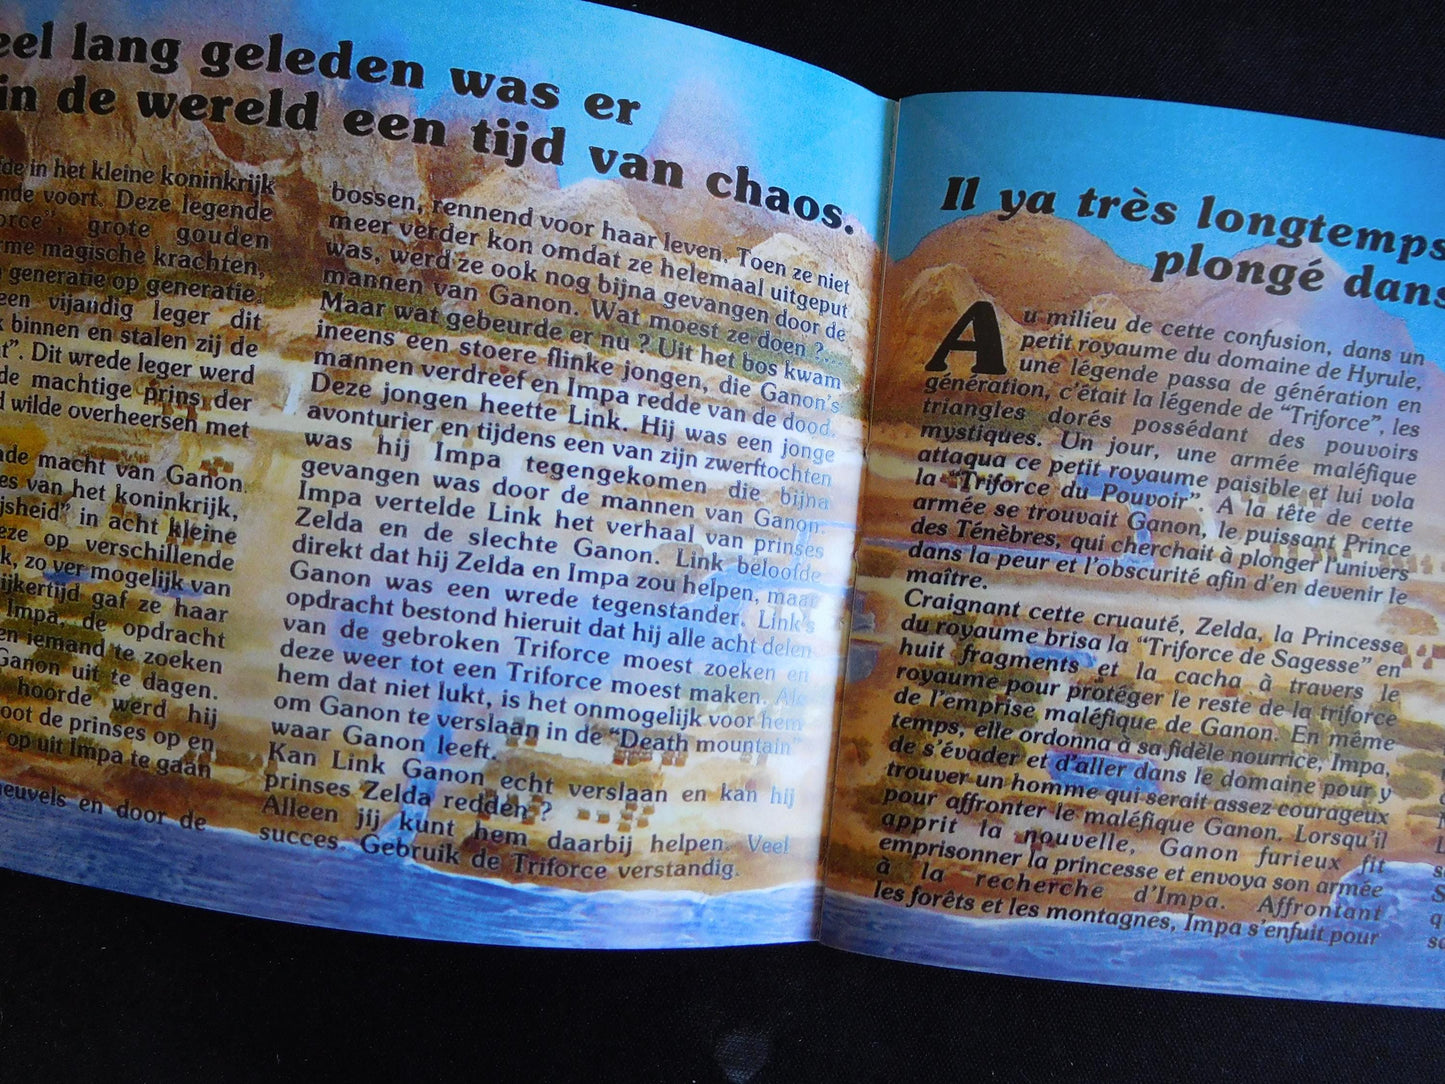 eel lang geleden was er
in de wereld een tijd van chaos.
fde in het kleine koninkrijk
nde voort. Deze legende
orce", grote gouden
rme magische krachten,
generatie op generatie.
een vijandig leger dit
k binnen en stalen zij de
t". Dit wrede leger werd
de machtige prins der
d wilde overheersen met
nde macht van Ganon.
es van het koninkrijk,
ijsheid" in acht kleine
eze op verschillende
k, zo ver mogelijk van
ijkertijd gaf ze haar
Impa, de opdracht
en iemand te zoeken
Ganon uit te dagen.
hoorde werd hij
oot de prinses op en
op uit Impa te gaan
heuvels en door de
bossen, rennend voor haar leven. Toen ze niet
meer verder kon omdat ze helemaal uitgeput
was, werd ze ook nog bijna gevangen door de
mannen van Ganon. Wat moest ze doen ?...
Maar wat gebeurde er nu ? Uit het bos kwam
ineens een stoere flinke jongen, die Ganon's
mannen verdreef en Impa redde van de dood.
Deze jongen heette Link. Hij was een jonge
avonturier en tijdens een van zijn zwerftochten
was hij Impa tegengekomen die bijna
gevangen was door de mannen van Ganon.
Impa vertelde Link het verhaal van prinses
Zelda en de slechte Ganon. Link beloofde
direkt dat hij Zelda en Impa zou helpen, maar
Ganon was een wrede tegenstander. Link's
opdracht bestond hieruit dat hij alle acht delen
van de gebroken Triforce moest zoeken en
deze weer tot een Triforce moest maken. Als
hem dat niet lukt, is het onmogelijk voor hem
om Ganon te verslaan in de "Death mountain"
waar Ganon leeft.
Kan Link Ganon echt verslaan en kan hij
prinses Zelda redden ?
Alleen jij kunt hem daarbij helpen. Veel
succes. Gebruik de Triforce verstandig.
Il ya très longtemps
plongé dans
Au milieu de cette confusion, dans un
petit royaume du domaine de Hyrule,
une légende passa de génération en
génération, c'était la légende de "Triforce", les
triangles dorés possédant des pouvoirs
mystiques. Un jour, une armée maléfique
attaqua ce petit royaume paisible et lui vola
la "Triforce du Pouvoir". A la tête de cette
armée se trouvait Ganon, le puissant Prince
des Ténèbres, qui cherchait à plonger l'univers
dans la peur et l'obscurité afin d'en devenir le
maître.
Craignant cette cruauté, Zelda, la Princesse
du royaume brisa la "Triforce de Sagesse" en
huit fragments et la cacha à travers le
royaume pour protéger le reste de la triforce
de l'emprise maléfique de Ganon. En même
temps, elle ordonna à sa fidèle nourrice, Impa,
de s'évader et d'aller dans le domaine pour y
trouver un homme qui serait assez courageux
pour affronter le maléfique Ganon. Lorsqu'il
apprit la nouvelle, Ganon furieux fit
emprisonner la princesse et envoya son armée
à la recherche d'Impa. Affrontant
les forêts et les montagnes, Impa s'enfuit pour